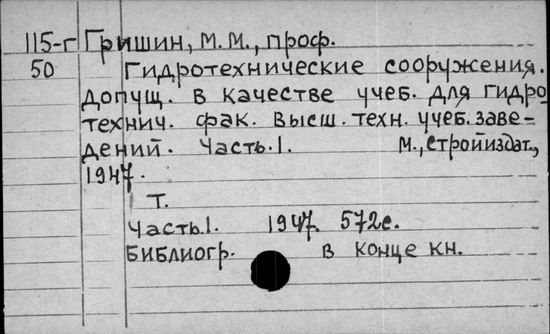 115-г Гришин, М.М., проф.
50 Гидротехнические сооружения.
Допущ. в качестве учеб. для гидро
технич. фак. высш. техн. учеб. заве-
дений. Часть.1. М., Стройиздат.,
1947.
Т.
Часть.1. 1947. 572с.
Библиогр. в конце кн.